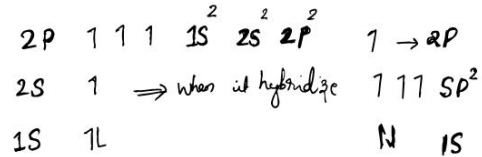 2P 1 1 1 1S² 2S² 2P² 1 → 2P
2S 1 ⇒ when it hybridize 1 1 1 SP²
1S 1L 1S